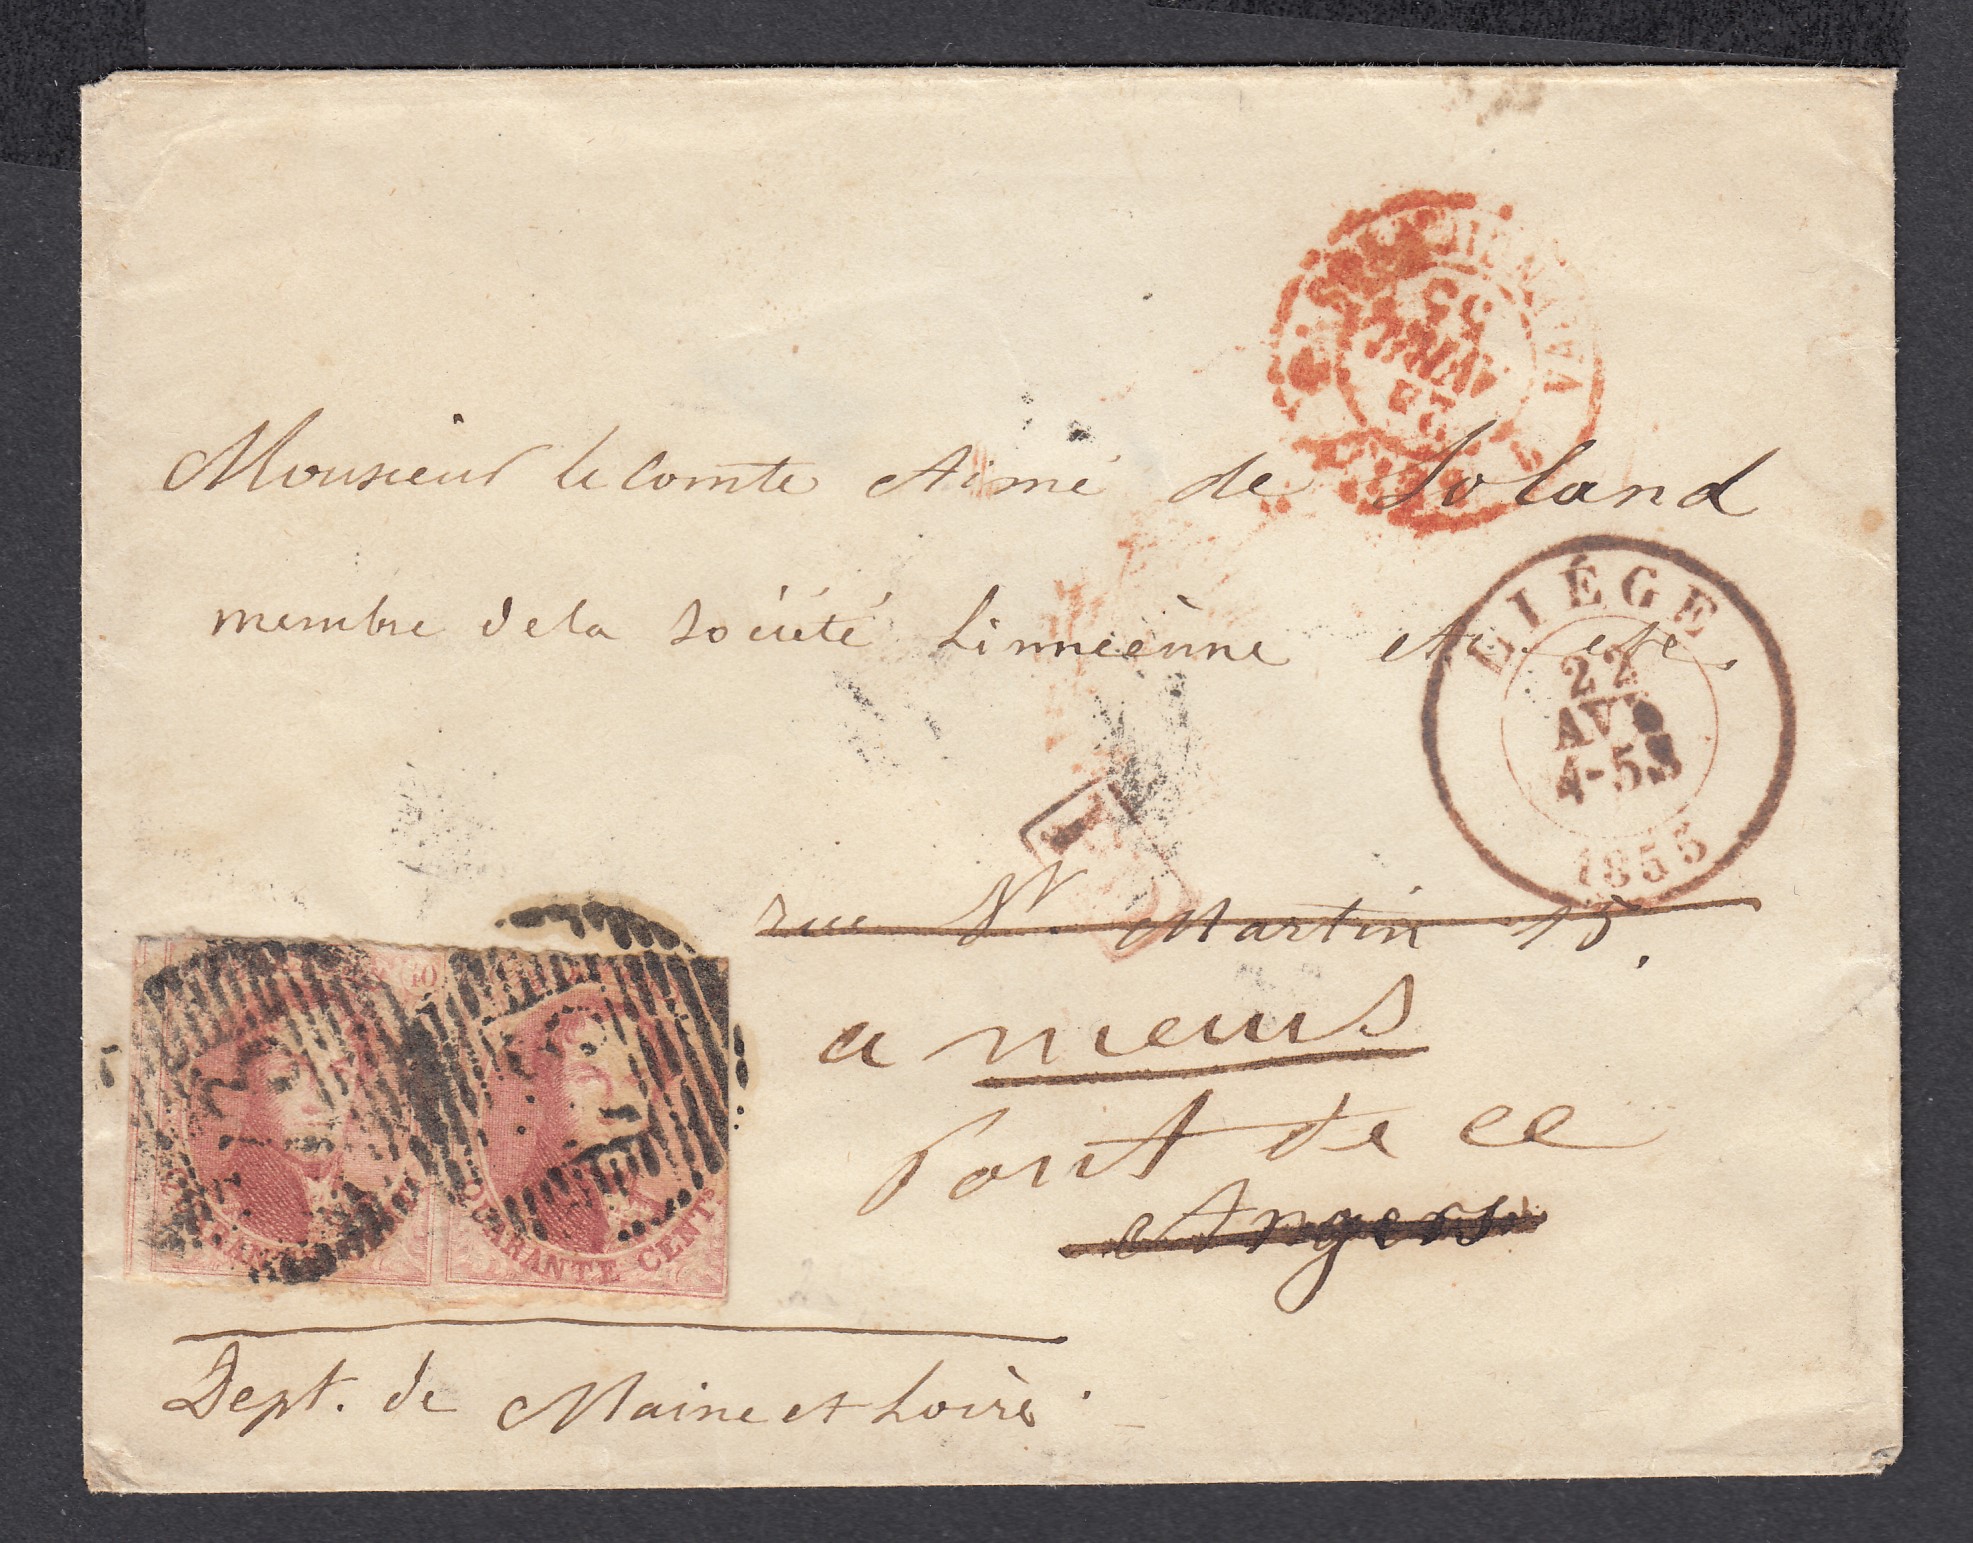 Monsieur le Comte Aimé de Soland
membre de la Société Linnéenne etc. etc.
LIÉGE
22
AVR
4-5S
1855
PD
rue St. Martin 15.
a meurs
Pont de cé
Angers
QUARANTE CENTS
QUARANTE CENTS
Dept. de Maine et Loire
AVRIL
55